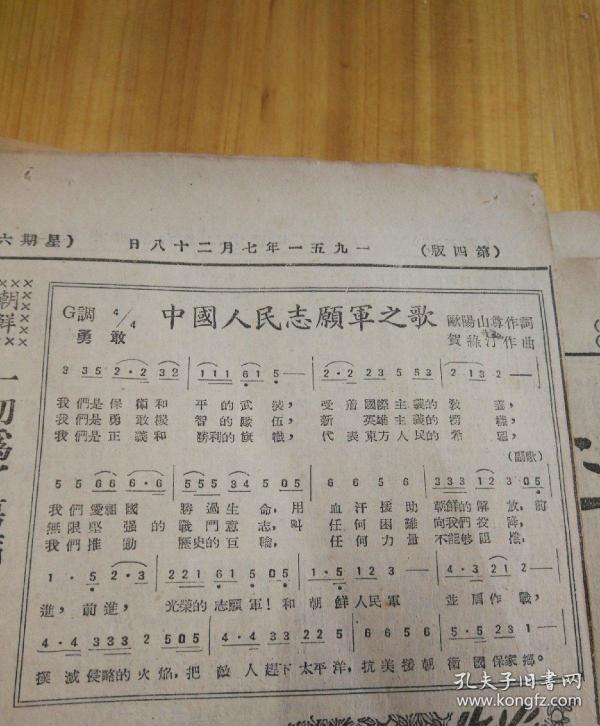 (第四版)
一九五一年七月二十八日
(星期六
朝鮮
G調 4/4
勇敢
中國人民志願軍之歌
歐陽山尊作詞
賀綠汀作曲
3 3 5 2·2 3 2 1 1 1 6 1 5 — 2·2 2 3 5 3 2·1 3 —
我們是保衛和平的武裝,受着國際主義的教養,
我們是勇敢機智的隊伍,新英雄主義的榜樣,
我們是正義和勝利的旗幟,代表東方人民的希望,
(副歌)
5 5 6 6 6·6 5 5 3 5 6 0 5 6 6 5 6 5 3 3 3 1 2 3 0 5
我們愛祖國勝過生命,用血汗援助朝鮮的解放,前
無限堅强的戰鬥意志,叫任何困難向我們投降,
我們推動歷史的巨輪,任何力量不能够阻擋,
1·5 2·3 2 2 1 6 1 5 0 5 1·5 1 3 4·3 2 1 2 —
進,前進,光榮的志願軍!和朝鮮人民軍並肩作戰,
4·4 3 3 3 2 5 0 5 4·4 3 3 2 2 5 6 6 5 6 5·5 2 3 1 —
撲滅侵略的火焰,把敵人趕下太平洋,抗美援朝衛國保家鄉。
孔夫子旧書网
www.kongfz.com